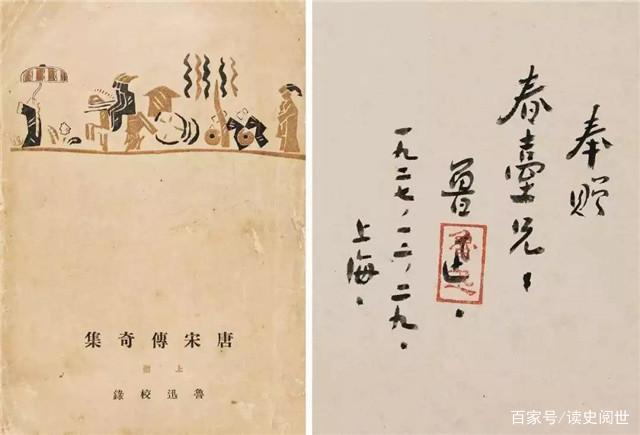 唐宋傳奇集
魯迅校錄
奉贈
春臺兄：
魯迅。
一九二七，一二，二九。
上海。
百家号/读史阅世